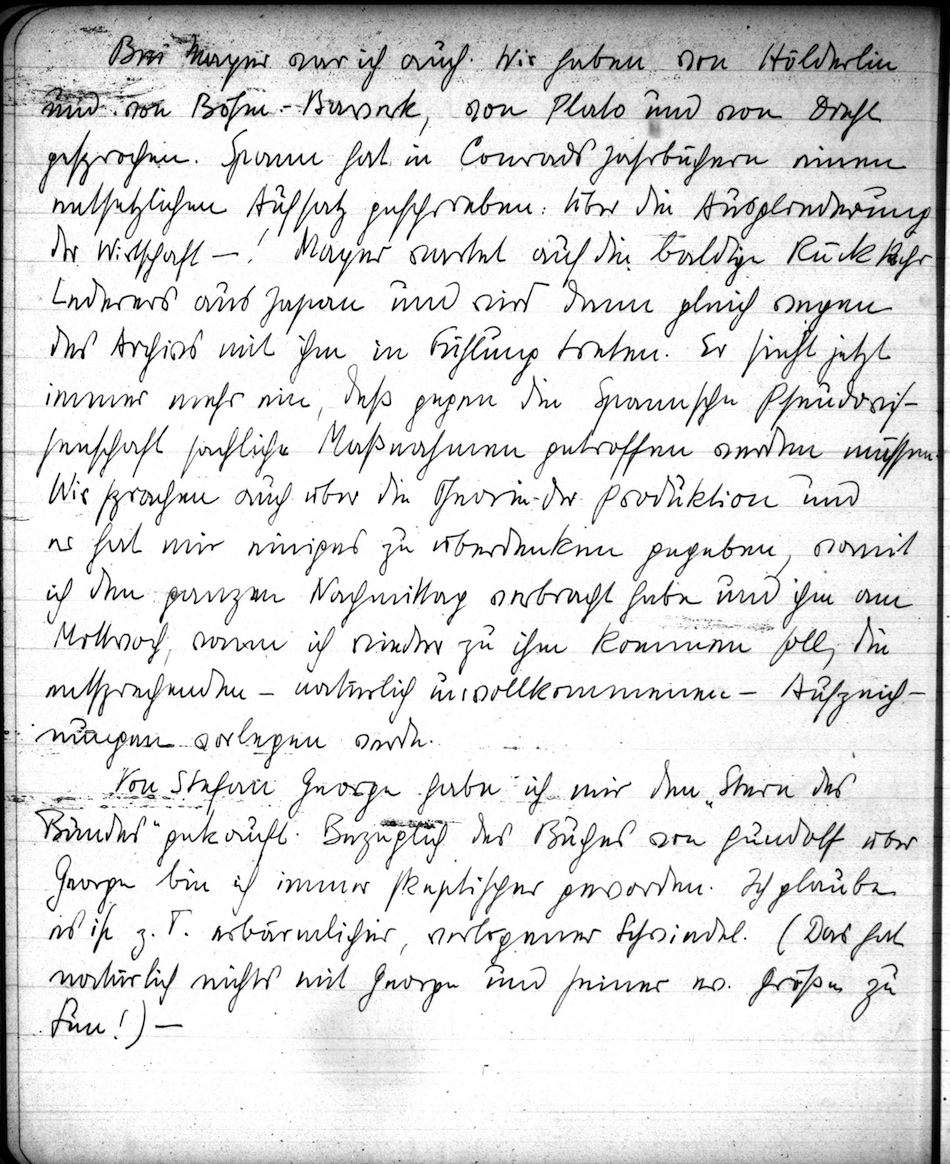 Bei Mayer war ich auch. Wir haben von Hölderlin
und von Böhm-Bawerk, von Plato und von Diehl
gesprochen. Spann hat in Conrads Jahrbüchern einen
entsetzlichen Aufsatz geschrieben: Über die Ausgliederung
der Wirtschaft –! Mayer wartet auf die baldige Rückkehr
Lederers aus Japan und wird dann gleich wegen
des Archivs mit ihm in Fühlung treten. Er sieht jetzt
immer mehr ein, daß gegen die Spannsche Pseudowis-
senschaft sachliche Maßnahmen getroffen werden müssen.
Wir sprachen auch über die Theorie der Produktion und
er hat mir einiges zu überdenken gegeben, womit
ich den ganzen Nachmittag verbracht habe und ihm am
Mittwoch, wann ich wieder zu ihm kommen soll, die
entsprechenden – natürlich unvollkommenen – Aufzeich-
nungen vorlegen werde.
Von Stefan George habe ich mir den „Stern des
Bundes“ gekauft. Bezüglich des Buches von Gundolf über
George bin ich immer skeptischer geworden. Ich glaube
es ist z. T. erbärmlicher, verlogener Schwindel. (Das hat
natürlich nichts mit George und seiner ev. Größe zu
tun!) –